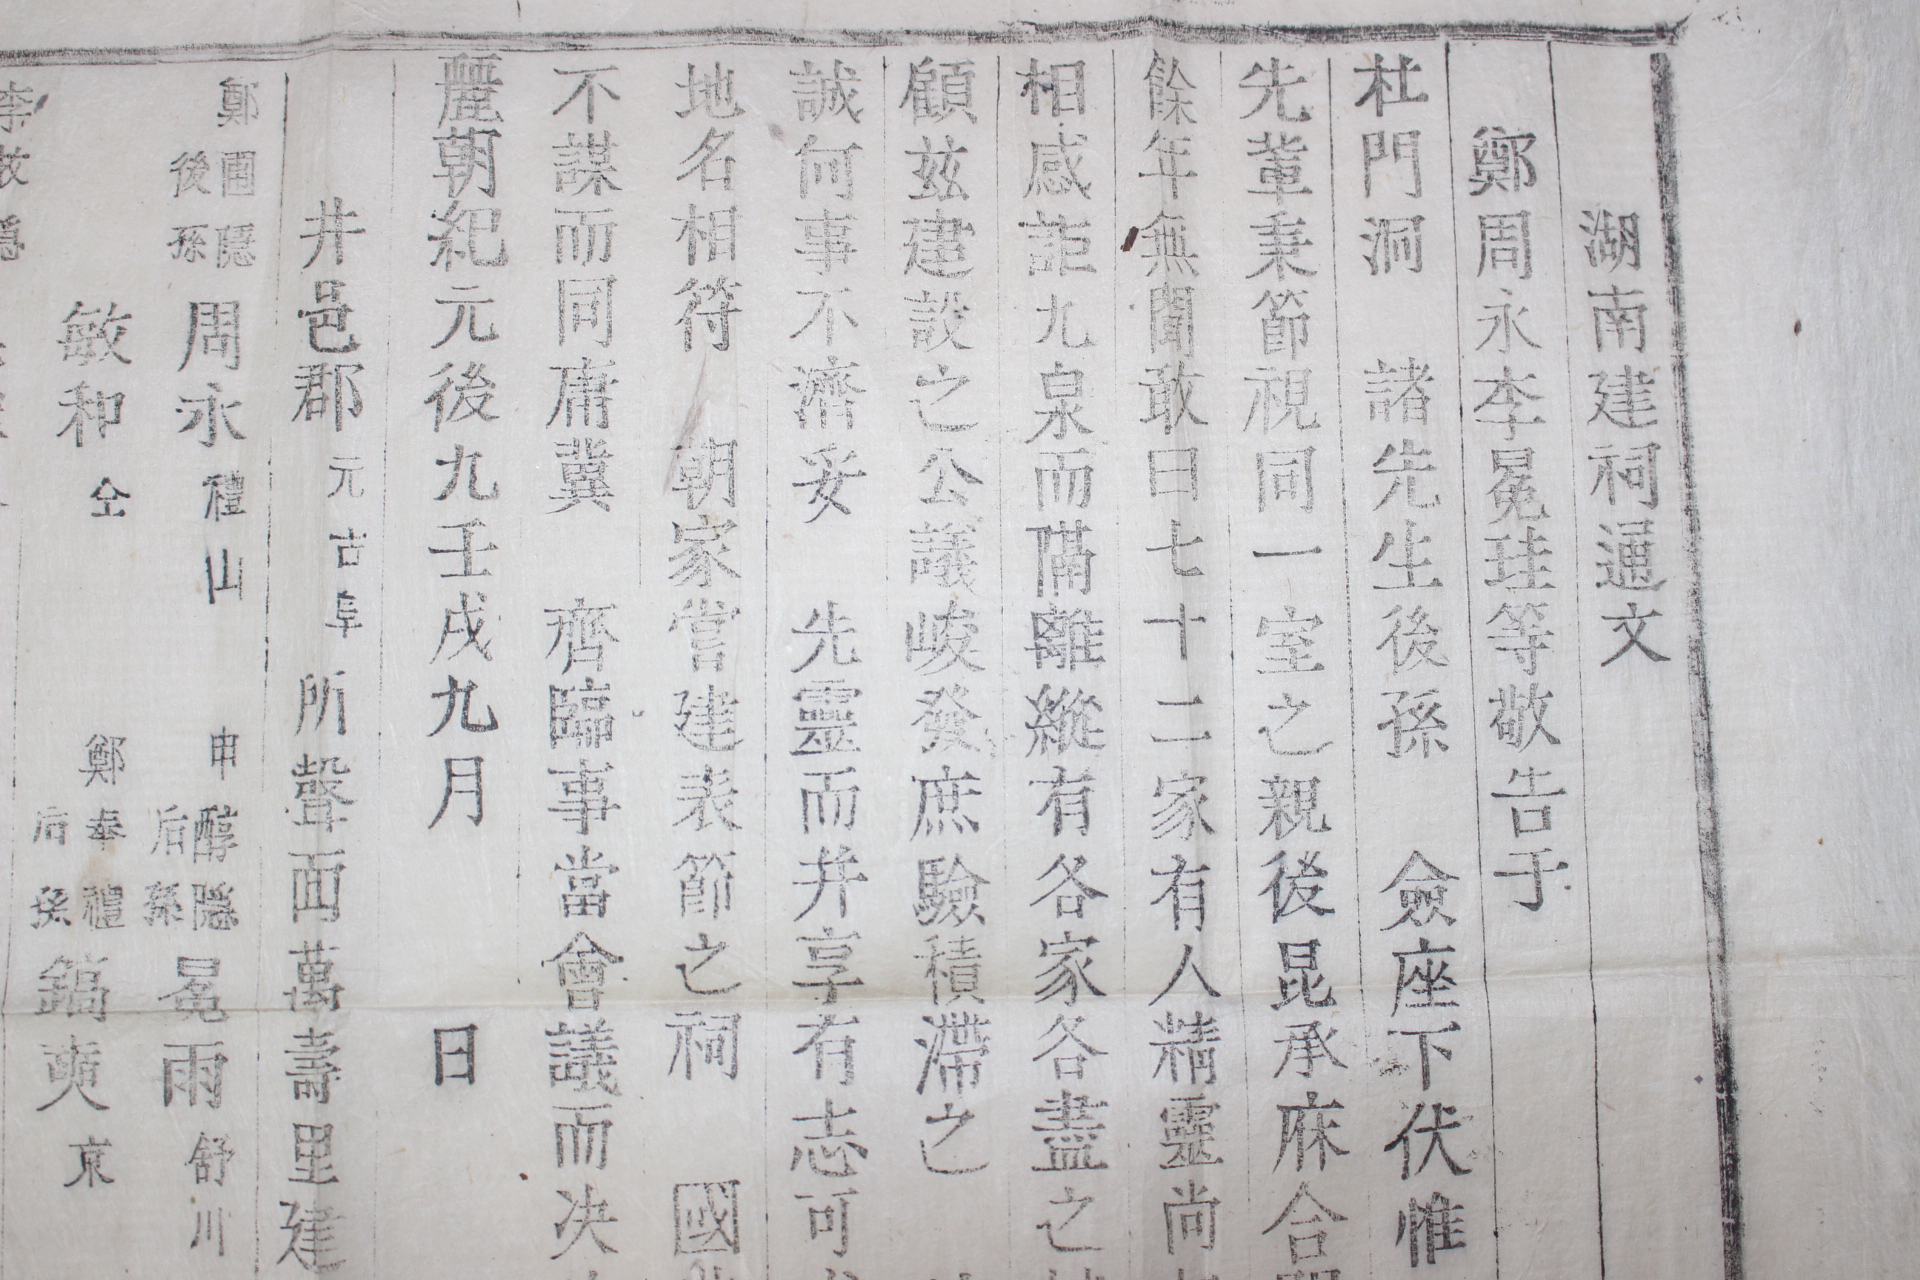 湖南建祠通文
鄭周永李冕珪等敬告于
杜門洞 諸先生後孫 僉座下伏惟
先輩秉節視同一室之親後昆承庥合
餘年無聞敢曰七十二家有人精靈尚
相感詎九泉而隔離縱有各家各盡之
顧玆建設之公議峻發庶驗積滯之
誠何事不濟妥 先靈而幷享有志可
地名相符 朝家嘗建表節之祠 國
不謀而同庸冀 齊臨事當會議而決
麗朝紀元後九壬戌九月 日
井邑郡元古阜 所聲面萬壽里建
鄭圃隱後孫 周永 禮山 申醇隱后孫 冕雨 舒川
敏和 仝 鄭奉禮后孫 鎬奭 京
李 隱